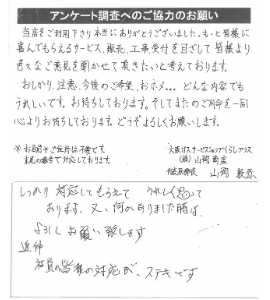 アンケート調査へのご協力のお願い
当店をご利用下さり本当にありがとうございました。もっと皆様に
喜んでもらえるサービス、販売、工事受付を目ざして皆様より
色々なご意見を聞かせて頂きたいと考えております。
おしかり、注意、今後のご希望、おホメ… どんな内容でも
うれしいです。お待ちしております。そしてまたのご用命を一同
心よりお待ちしております。どうぞよろしくお願いします。
※お名前やご住所は不要です。
大阪ガスサービスショップくらしプラス
(株)山岡商店
代表取締役 山岡
しっかり対応してもらえて うれしく思って
おります。又、何かありました時は、
よろしくお願い致します
追伸
社員の皆様の対応が、ステキです